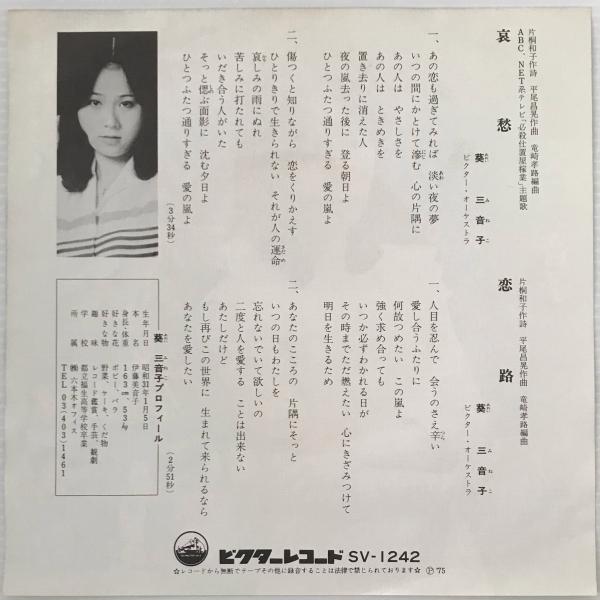 片桐和子作詩 平尾昌晃作曲 竜崎孝路編曲
ABC、NET系テレビ「必殺仕置屋稼業」主題歌
哀愁
葵 三音子
あおい みねこ
ビクター・オーケストラ
一、あの恋も過ぎてみれば 淡い夜の夢
いつの間にかとけて滲む 心の片隅に
あの人は やさしさを
あの人は ときめきを
置き去りに消えた人
夜の嵐去った後に 登る朝日よ
ひとつふたつ通りすぎる 愛の嵐よ
二、傷つくと知りながら 恋をくりかえす
ひとりきりで生きられない それが人の運命
さだめ
哀しみの雨にぬれ
苦しみに打たれても
いだき合う人がいた
そっと偲ぶ面影に 沈む夕日よ
ひとつふたつ通りすぎる 愛の嵐よ
(3分34秒)
片桐和子作詩 平尾昌晃作曲 竜崎孝路編曲
恋路
葵 三音子
あおい みねこ
ビクター・オーケストラ
一、人目を忍んで 会うのさえ辛い
愛し合うふたりに
何故つめたい この嵐よ
強く求め合っても
いつか必ずわかれる日が
その時までただ燃えたい 心にきざみつけて
明日を生きるため
二、あなたのこころの 片隅にそっと
いつの日もわたしを
忘れないでいて欲しいの
二度と人を愛する ことは出来ない
あたしだけど
もし再びこの世界に 生まれて来られるなら
あなたを愛したい
(2分51秒)
葵 三音子プロフィール
生年月日 昭和31年1月5日
本名 伊藤美音子
身長・体重 163cm、53kg
好きな花 ポピー、バラ
好きな物 野菜、ケーキ、くだ物
趣味 レコード鑑賞、手芸、観劇
学校 都立福生高等学校卒業
所属 ㈱六本木オフィス
TEL 03(403)1461
ビクターレコード SV-1242
☆レコードから無断でテープその他に録音することは法律で禁じられております☆ Ⓟ75